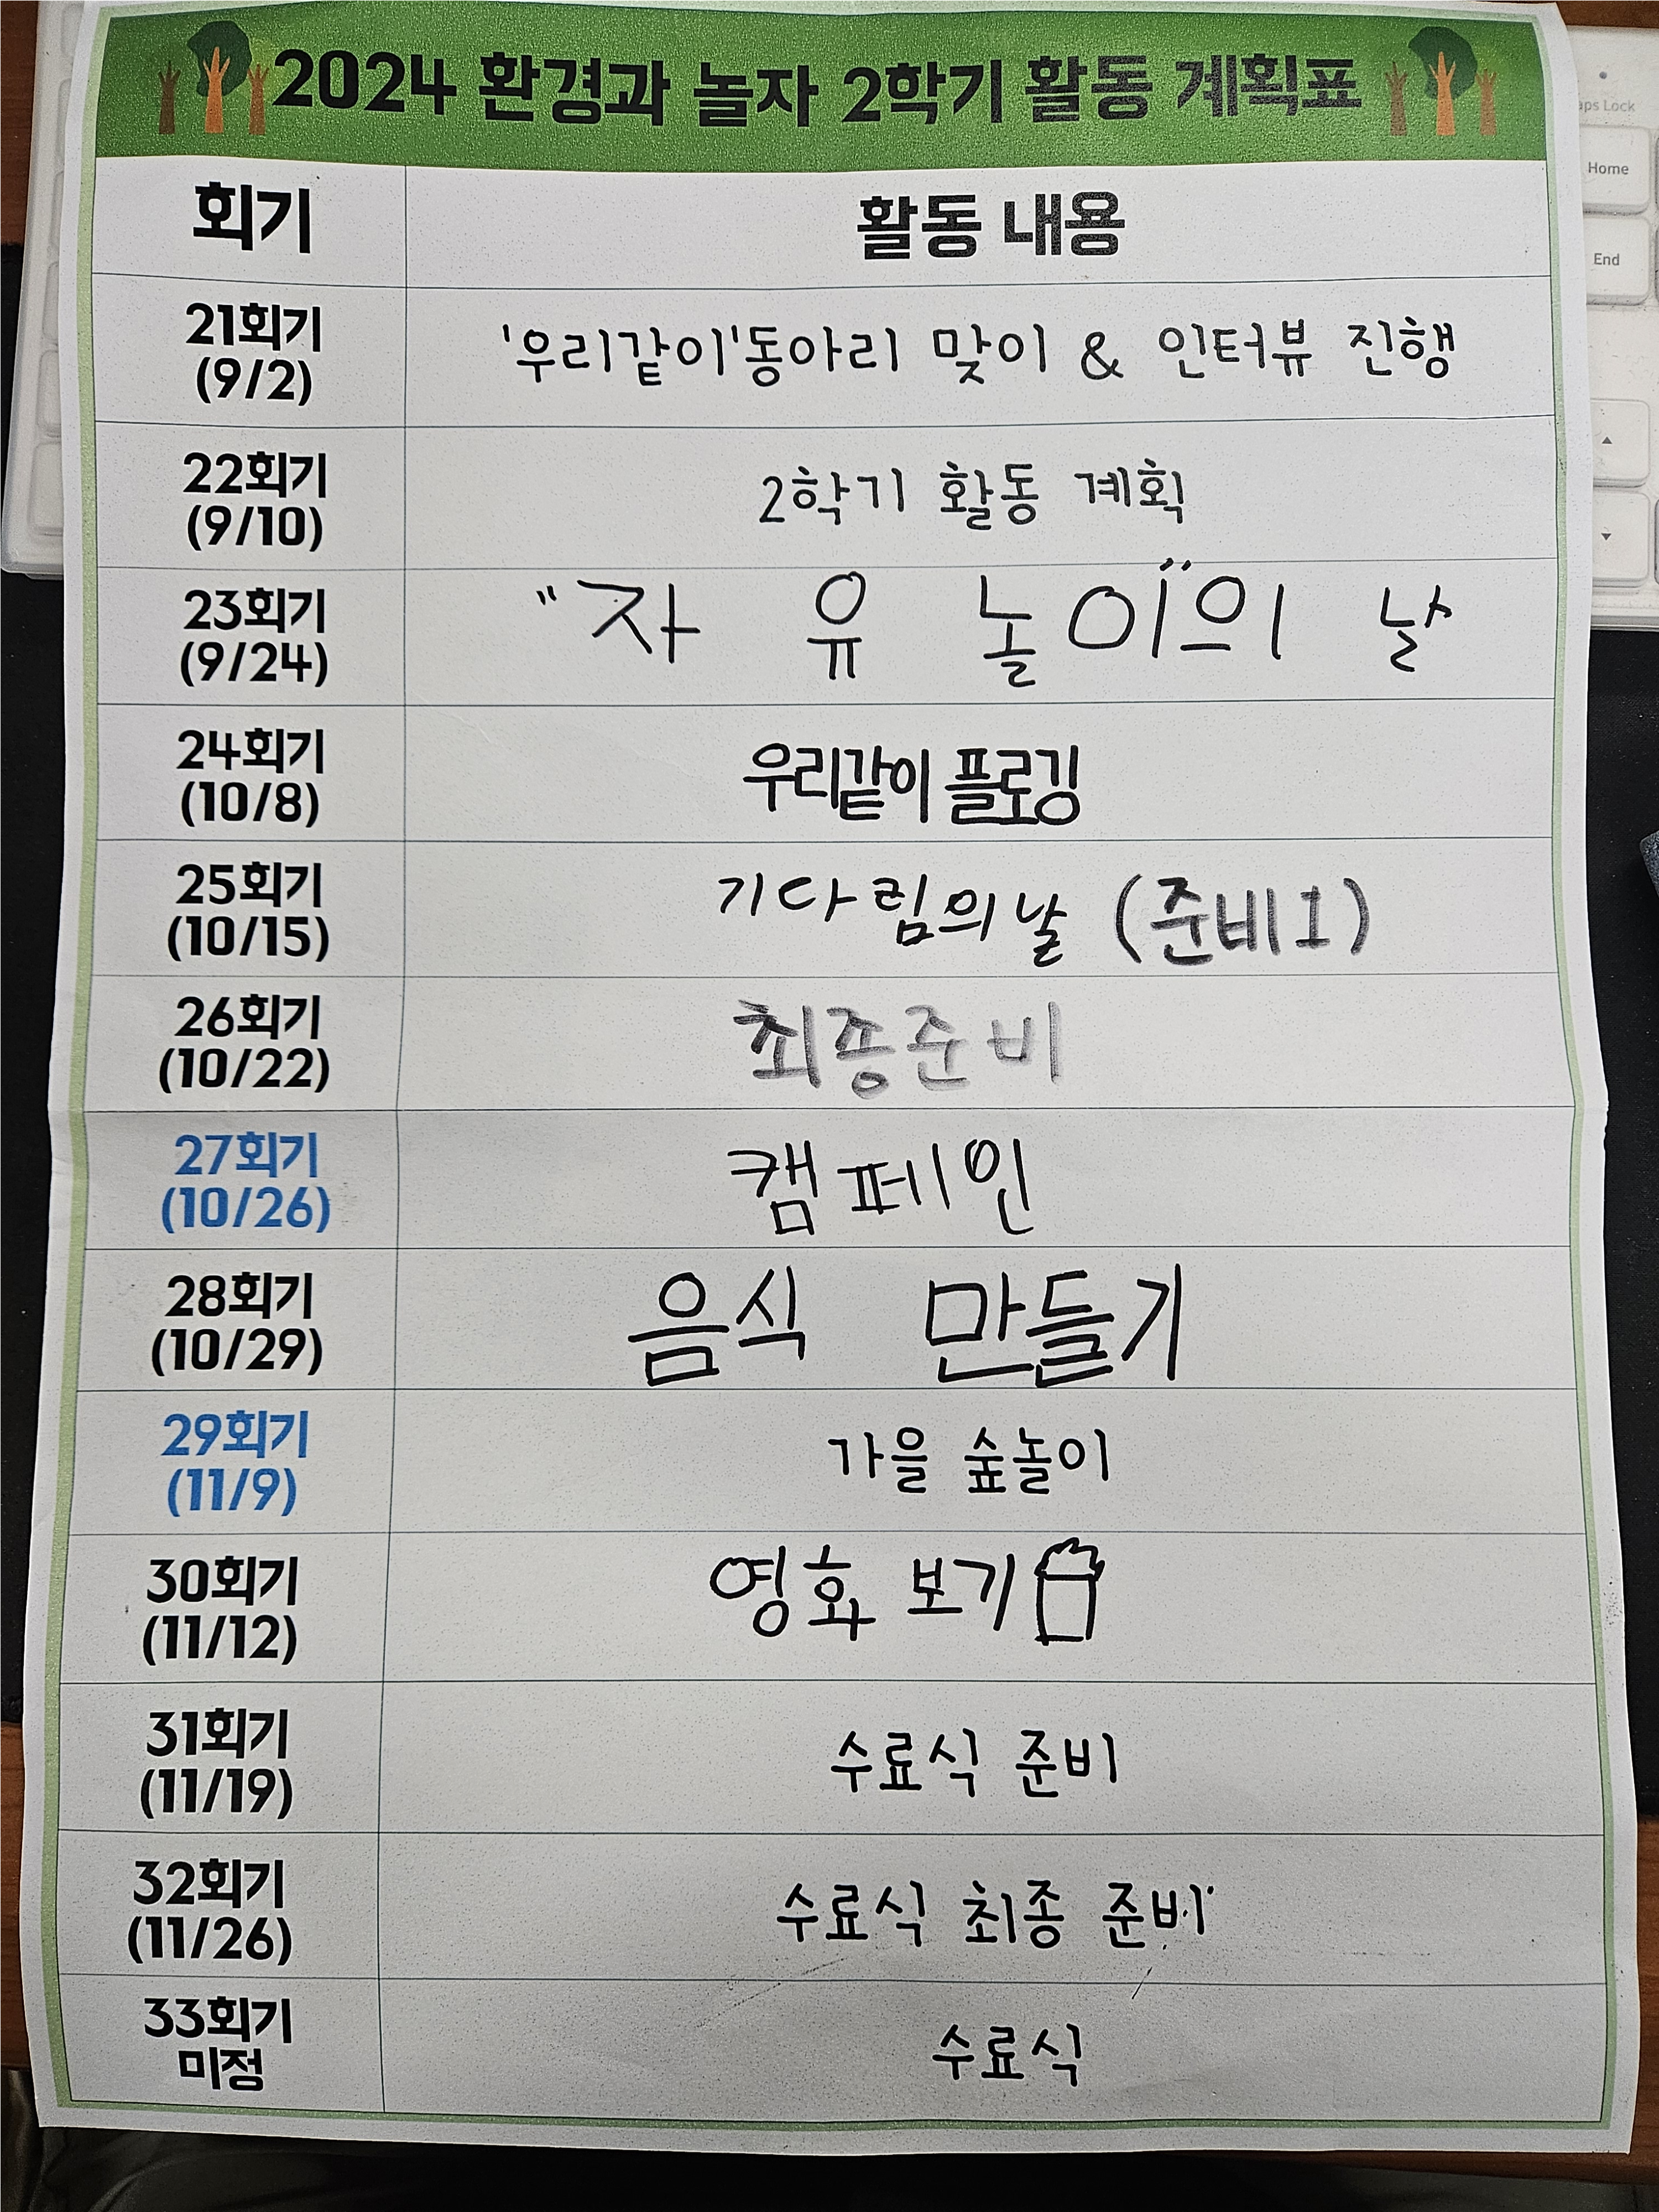 2024 환경과 놀자 2학기 활동 계획표
aps Lock
Home
End
회기 활동 내용
21회기
(9/2)
'우리같이'동아리 맞이 & 인터뷰 진행
22회기
(9/10)
2학기 활동 계획
23회기
(9/24)
"자 유 놀이"의 날
24회기
(10/8)
우리같이 플로깅
25회기
(10/15)
기다림의날 (준비1)
26회기
(10/22)
최종준비
27회기
(10/26)
캠페인
28회기
(10/29)
음식 만들기
29회기
(11/9)
가을 숲놀이
30회기
(11/12)
영화 보기
31회기
(11/19)
수료식 준비
32회기
(11/26)
수료식 최종 준비
33회기
미정
수료식